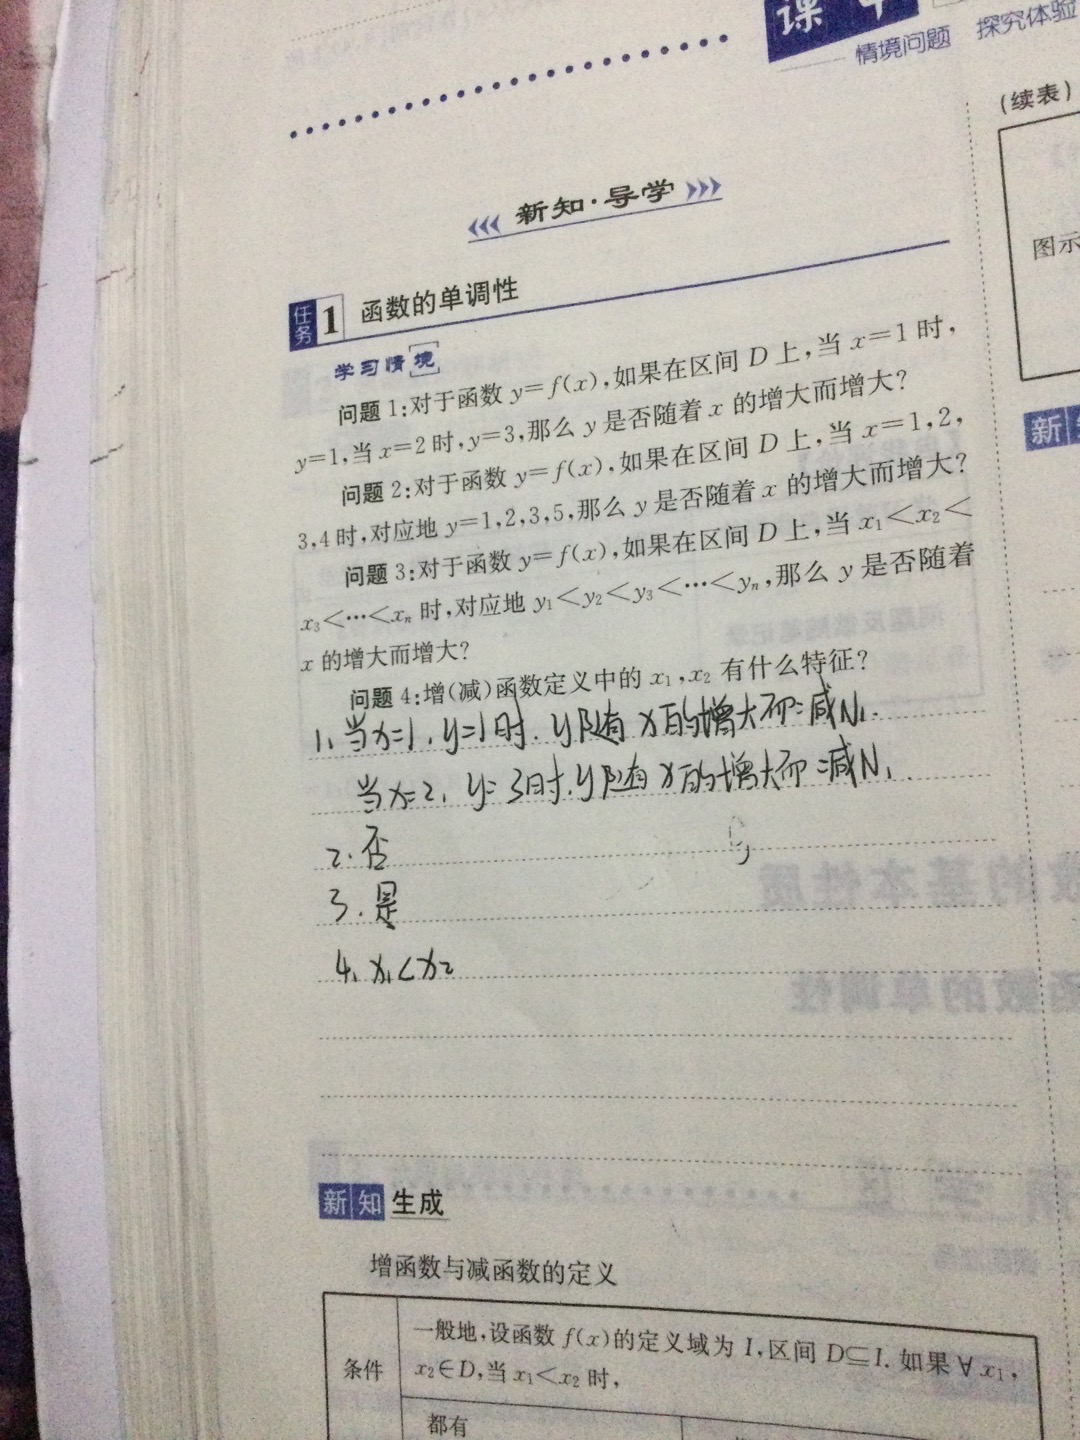 课
情境问题 探究体验
(续表)
新知·导学
图示
任务1 函数的单调性
学习情境
问题1:对于函数 y=f(x),如果在区间 D 上,当 x=1 时,
y=1,当 x=2 时,y=3,那么 y 是否随着 x 的增大而增大?
问题2:对于函数 y=f(x),如果在区间 D 上,当 x=1,2,
3,4 时,对应地 y=1,2,3,5,那么 y 是否随着 x 的增大而增大?
问题3:对于函数 y=f(x),如果在区间 D 上,当 x₁<x₂<
x₃<…<xₙ 时,对应地 y₁<y₂<y₃<…<yₙ,那么 y 是否随着
x 的增大而增大?
问题4:增(减)函数定义中的 x₁,x₂ 有什么特征?
新
1、当x=1,y=1时.y随着x的增大而减小.
当x=2,y=3时.y随着x的增大而减小.
2.否
3.是
4、x₁<x₂
新知 生成
增函数与减函数的定义
条件
一般地,设函数 f(x)的定义域为 I,区间 D⊆I.如果∀x₁,
x₂∈D,当 x₁<x₂ 时,
都有